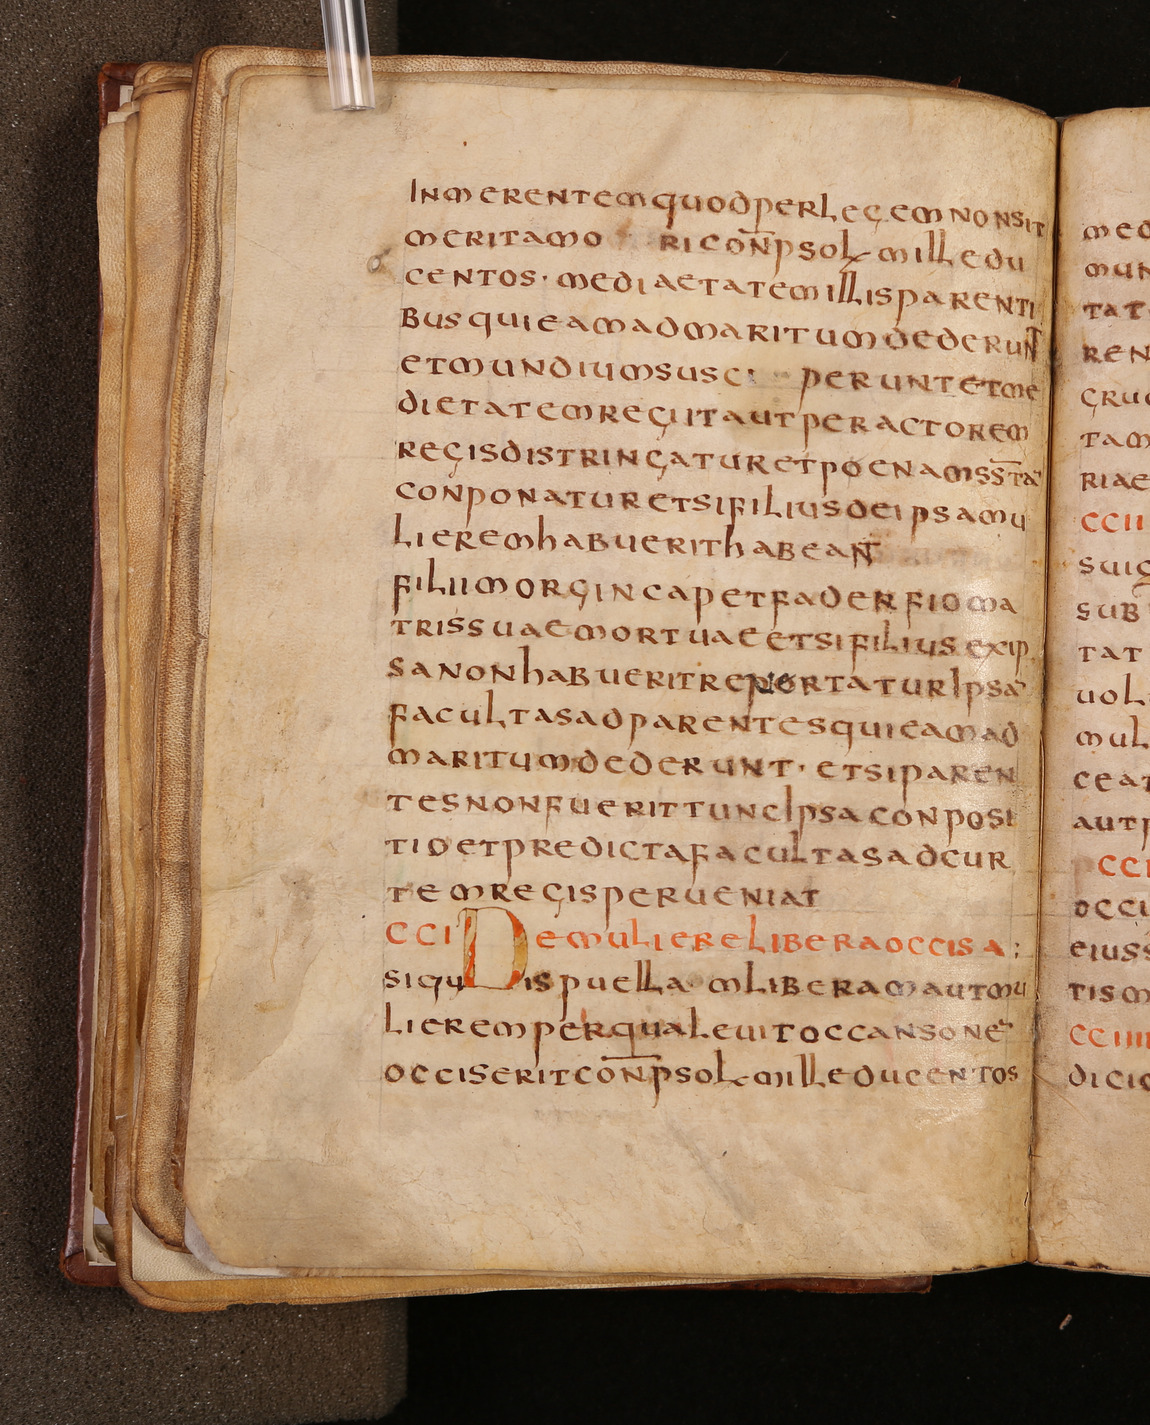 Inmerentem quod per legem non sit
merita mo ri conp sol mille du
centos · medietatem illis parenti
bus qui eam ad maritum dederunt
et mundium susci perunt et me
dietatem regi ita ut per actorem
regis distringatur et poena ss̅ta
conponatur et si filius de ipsa mu
lierem habuerit habeant
filii morgincap et faderfio ma
tris suae mortuae et si filius ex ip
sa non habuerit reportatur ipsa
facultas ad parentes qui eam ad
maritum dederunt · et si paren
tes non fuerit tunc ipsa conposi
tio et predicta facultas ad cur
tem regis perueniat
CCI De muliere libera occisa ;
si quis puella m liberam aut mu
lierem per qualeuit occansone
occiserit conp sol mille ducentos
med
mun
tat
ren
gru
tam
riae
CCII
suig
sub
tat
uol
mul
ceat
aut p
CCI
occi
eiuss
tis m
CCIIII
dicio